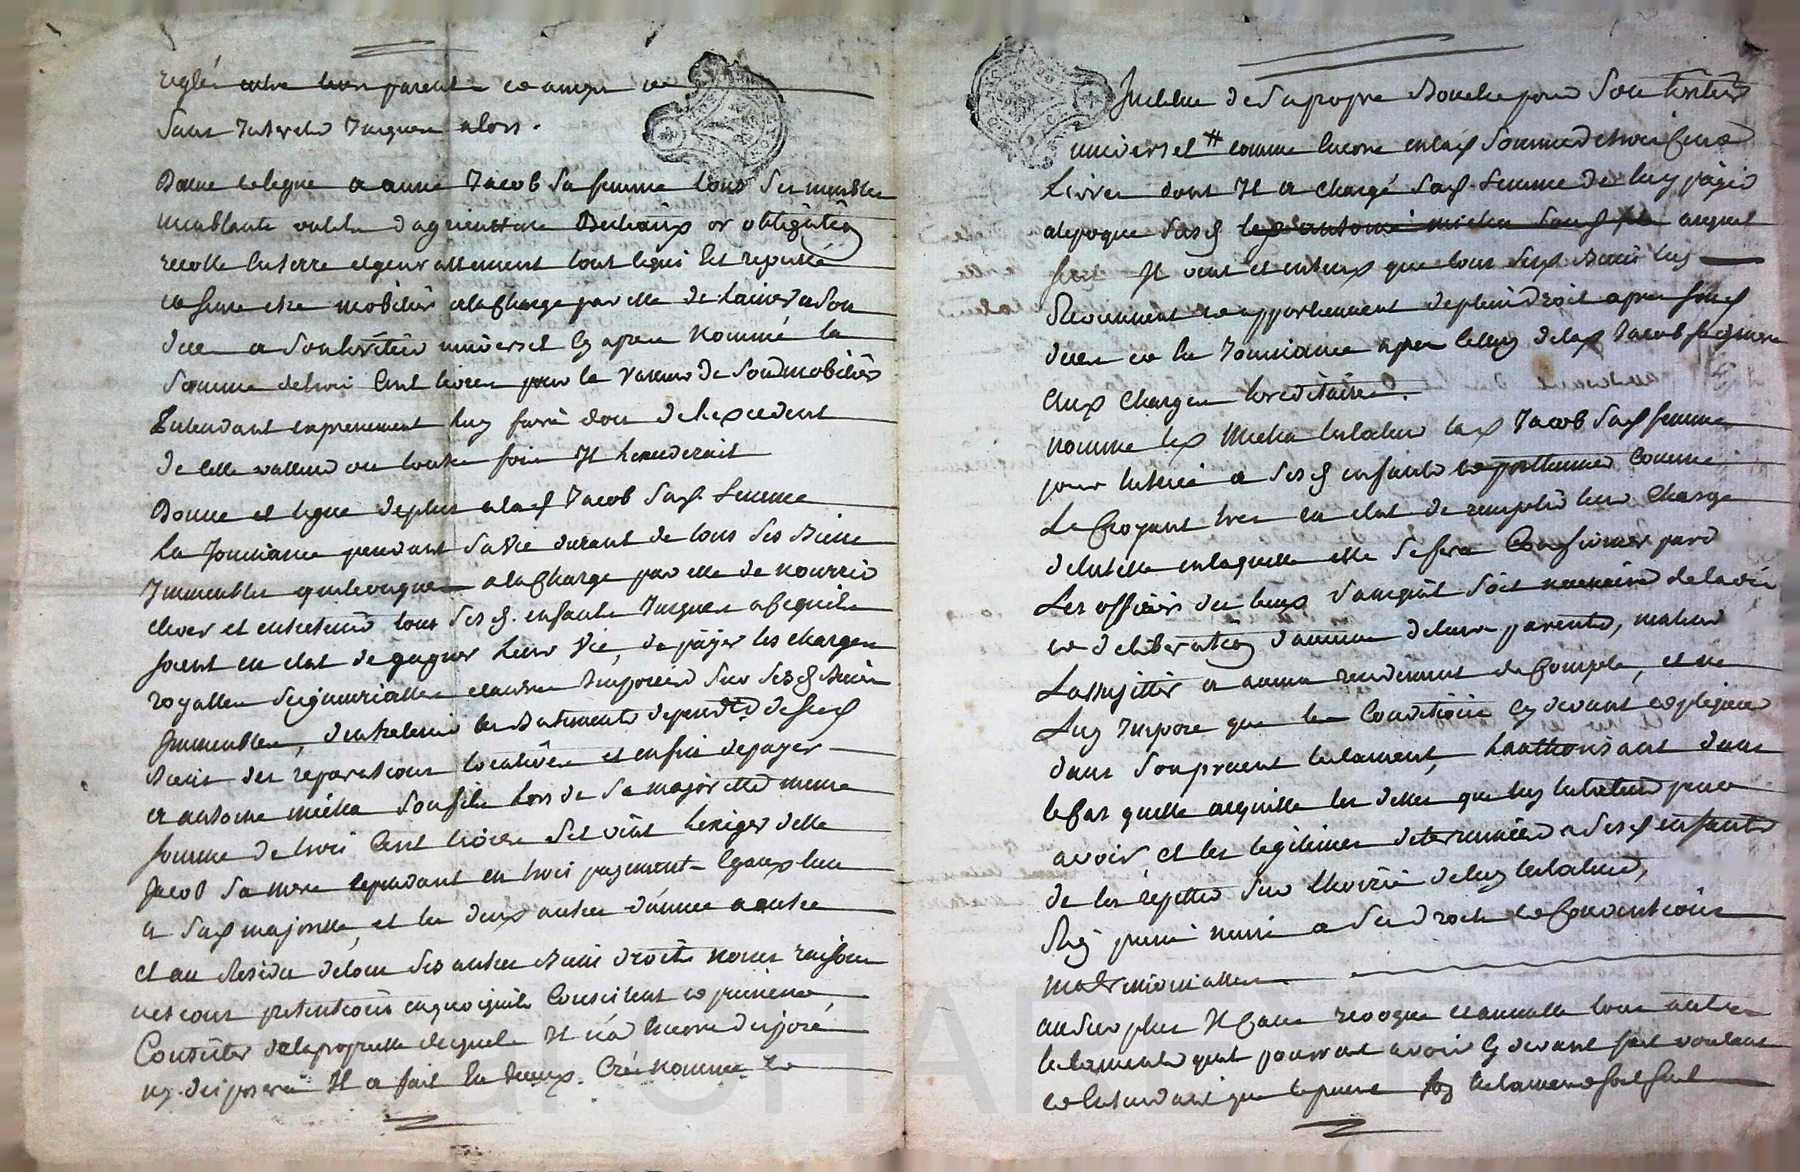 reglés entre leurs parents et amys et
sans Interets Jusques alors.
Donne et legue a anne Jacob sa femme tous ses meubles
meublants outils d'agriculture Bestiaux or obligations
recolte en terre et generallement tout ce qui est reputé
et sense etre mobilier a la charge par elle de laisser a son
deces a son heritier universel cy apres nommé la
somme de trois cent livres pour la valeur de son d mobilier
Entendant expressement luy faire don de l'excedent
de cette valleur ou toutes fois Il excederait
Donne et legue de plus a la d Jacob sa d. femme
la Jouissance pendant sa vie durant de tous ses Biens
Immeubles quelconques a la charge par elle de nourrir
elever et entretenir tous ses d. enfants Jusques a ce qu'ils
soient en etat de gagner leur vie, de payer les charges
royalles seigneurialles et autres Imposees sur ses d Biens
Immeubles, d'entretenir les Batiments dependts de ses d
Biens des reparations locatives et enfin de payer
a antoine michea son fils lors de sa majorité même
somme de trois cent livres s'il vient l'exiger de la
Jacob sa mere cependant en trois payements Egaux l'un
a sa d majorité, et les deux autres d'année a autre
et au Residu de tous ses autres Biens droits noms raisons
actions pretentions en quoi qu'ils consistent et puissent
Consister de la propriété desquels Il n'a encore disposé
ny disposera Il a fait Institué Créé nommé et
Institue de sa propre Bouche pour son heritier
universel # comme encore en la d somme de trois cent
Livres dont Il a chargé sa d. femme de luy payer
a l'epoque sus d auquel
fait Il veut et entend que tous ses d Biens luy
Reviennent et appartiennent de plein droit apres son d
deces et la Jouissance apres celuy de la d Jacob sa mere
aux charges hereditaires.
nomme le d Michea testateur la d Jacob sa d femme
pour tutrice a ses d enfants comme
La Croyant tres en etat de remplir leur charge
de tutelle en laquelle elle se fera Confirmer par
Les officiers des lieux sans qu'il soit necessaire de l'avis
et deliberation d'aucuns de leurs parents, ny de
L'assujettir a aucun rendement de compte, et ne
Luy Impose que les Conditions cy devant expliquées
dans son present testament, l'authorisant dans
le cas qu'elle acquitte les dettes que luy testateur peut
avoir et les legitimes determinées a ses d enfants
de les répetter sur l'hoirie de luy testateur,
sans prejudice a ses droits et Conventions
matrimonialles.
au surplus Il casse revoque et annulle tous autres
testaments qu'il pourrait avoir cy devant fait voulant
et entendant que le present son testament soit seul